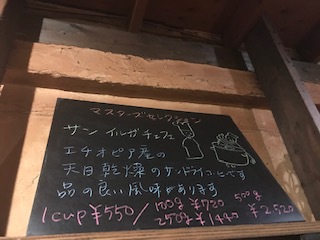 マスターズセレクション
サン イルガチェフェ
エチオピア産の
天日乾燥のケンドライコーヒーです
品の良い風味があります
1cup ¥550/ 100g ¥720 500g
250g ¥1440 ¥2,520